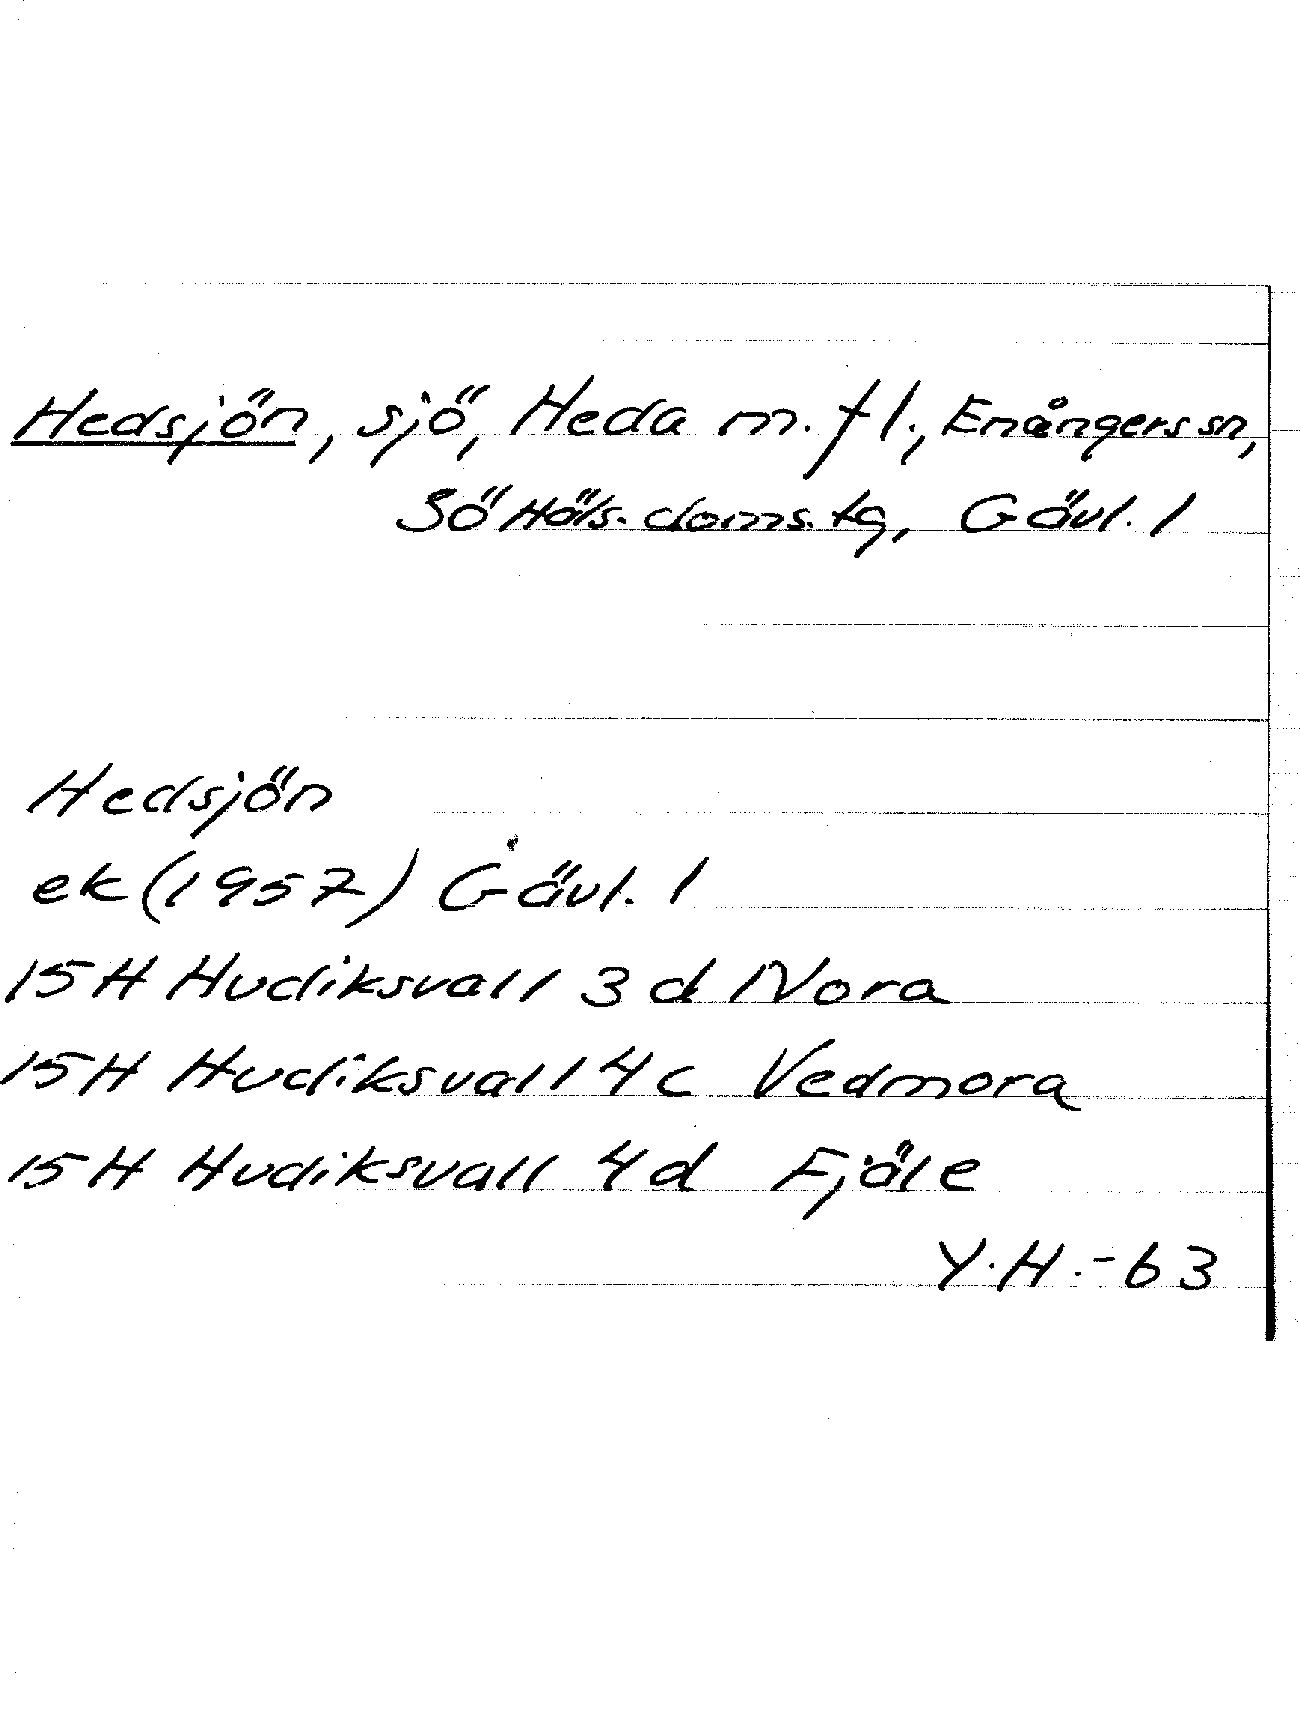 Hedsjön, sjö, Heda m. fl., Enångers sn,
Sö Häls. doms. tg, Gävl. l
Hedsjön
ek (1957) Gävl. l
15 H Hudiksvall 3 d Nora
15 H Hudiksvall 4 c Vedmora
15 H Hudiksvall 4 d Fjäle
Y. H. -63